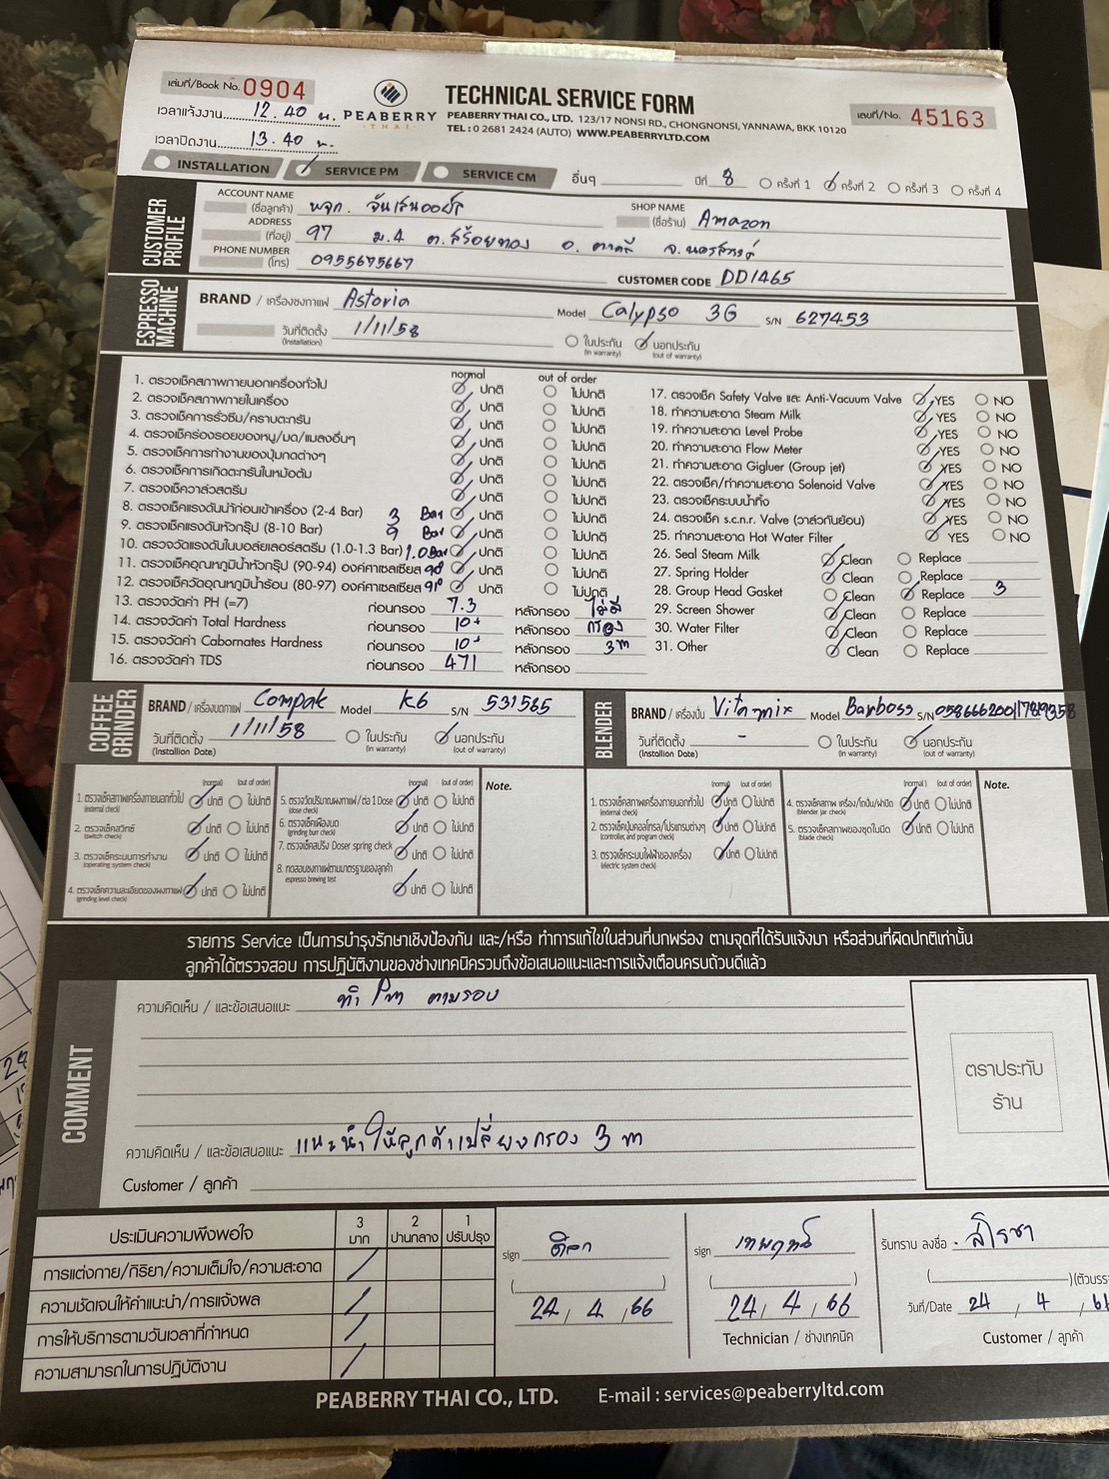 เล่มที่/Book No. 0904
เวลาแจ้งงาน 12.40 น.
เวลาปิดงาน 13.40 น.
PEABERRY
THAI
TECHNICAL SERVICE FORM
PEABERRY THAI CO., LTD. 123/17 NONSI RD., CHONGNONSI, YANNAWA, BKK 10120
TEL : 0 2681 2424 (AUTO) WWW.PEABERRYLTD.COM
เลขที่/No. 45163
INSTALLATION SERVICE PM SERVICE CM อื่นๆ ปีที่ 8 ครั้งที่ 1 ครั้งที่ 2 ครั้งที่ 3 ครั้งที่ 4
CUSTOMER PROFILE
ACCOUNT NAME (ชื่อลูกค้า) หจก. จันเสนออยล์ SHOP NAME (ชื่อร้าน) Amazon
ADDRESS (ที่อยู่) 97 ม.4 ต.สร้อยทอง อ. ตาคลี จ.นครสวรรค์
PHONE NUMBER (โทร) 0955675667 CUSTOMER CODE DD1465
ESPRESSO MACHINE
BRAND / เครื่องชงกาแฟ Astoria Model Calypso 3G S/N 627453
วันที่ติดตั้ง (Installation) 1/11/58 ในประกัน (in warranty) นอกประกัน (out of warranty)
normal out of order
1. ตรวจเช็คสภาพภายนอกเครื่องทั่วไป ปกติ ไม่ปกติ
2. ตรวจเช็คสภาพภายในเครื่อง ปกติ ไม่ปกติ
3. ตรวจเช็คการรั่วซึม/คราบตะกรัน ปกติ ไม่ปกติ
4. ตรวจเช็คร่องรอยของหนู/มด/แมลงอื่นๆ ปกติ ไม่ปกติ
5. ตรวจเช็คการทำงานของปุ่มกดต่างๆ ปกติ ไม่ปกติ
6. ตรวจเช็คการเกิดตะกรันในหม้อต้ม ปกติ ไม่ปกติ
7. ตรวจเช็ควาล์วสตรีม ปกติ ไม่ปกติ
8. ตรวจเช็คแรงดันน้ำก่อนเข้าเครื่อง (2-4 Bar) 3 Bar ปกติ ไม่ปกติ
9. ตรวจเช็คแรงดันหัวกรุ๊ป (8-10 Bar) 9 Bar ปกติ ไม่ปกติ
10. ตรวจวัดแรงดันในบอล์ยเลอร์สตรีม (1.0-1.3 Bar) 1.0 Bar ปกติ ไม่ปกติ
11. ตรวจเช็คอุณหภูมิน้ำหัวกรุ๊ป (90-94) องค์ศาเซลเซียส 90 ปกติ ไม่ปกติ
12. ตรวจเช็ควัดอุณหภูมิน้ำร้อน (80-97) องค์ศาเซลเซียส 91° ปกติ ไม่ปกติ
13. ตรวจวัดค่า PH (=7) ก่อนกรอง 7.3 หลังกรอง ไม่มี
14. ตรวจวัดค่า Total Hardness ก่อนกรอง 10+ หลังกรอง กรอง
15. ตรวจวัดค่า Cabornates Hardness ก่อนกรอง 10+ หลังกรอง 3m
16. ตรวจวัดค่า TDS ก่อนกรอง 471 หลังกรอง
17. ตรวจเช็ค Safety Valve และ Anti-Vacuum Valve YES NO
18. ทำความสะอาด Steam Milk YES NO
19. ทำความสะอาด Level Probe YES NO
20. ทำความสะอาด Flow Meter YES NO
21. ทำความสะอาด Gigluer (Group jet) YES NO
22. ตรวจเช็ค/ทำความสะอาด Solenoid Valve YES NO
23. ตรวจเช็คระบบน้ำทิ้ง YES NO
24. ตรวจเช็ค s.c.n.r. Valve (วาล์วกันย้อน) YES NO
25. ทำความสะอาด Hot Water Filter YES NO
26. Seal Steam Milk Clean Replace
27. Spring Holder Clean Replace
28. Group Head Gasket Clean Replace 3
29. Screen Shower Clean Replace
30. Water Filter Clean Replace
31. Other Clean Replace
COFFEE GRINDER
BRAND / เครื่องบดกาแฟ Compak Model K6 S/N 531565
วันที่ติดตั้ง (Installion Date) 1/11/58 ในประกัน (in warranty) นอกประกัน (out of warranty)
BLENDER
BRAND / เครื่องปั่น Vitamix Model Barboss S/N
วันที่ติดตั้ง (Installion Date) - ในประกัน (in warranty) นอกประกัน (out of warranty)
(normal) (out of order)
1. ตรวจเช็คสภาพเครื่องภายนอกทั่วไป (external check) ปกติ ไม่ปกติ
2. ตรวจเช็คสวิทช์ (switch check) ปกติ ไม่ปกติ
3. ตรวจเช็คระบบการทำงาน (operating system check) ปกติ ไม่ปกติ
4. ตรวจเช็คความละเอียดของผงกาแฟ (grinding level check) ปกติ ไม่ปกติ
(normal) (out of order)
5. ตรวจวัดปริมาณผงกาแฟ/ต่อ 1 Dose (dose check) ปกติ ไม่ปกติ
6. ตรวจเช็คเฟืองบด (grinding burr check) ปกติ ไม่ปกติ
7. ตรวจเช็คสปริง Doser spring check ปกติ ไม่ปกติ
8. ทดสอบชงกาแฟตามมาตรฐานของลูกค้า espresso brewing test ปกติ ไม่ปกติ
Note.
(normal) (out of order)
1. ตรวจเช็คสภาพเครื่องภายนอกทั่วไป (external check) ปกติ ไม่ปกติ
2. ตรวจเช็คปุ่มคอลโทรล/โปรแกรมต่างๆ (controller, and program check) ปกติ ไม่ปกติ
3. ตรวจเช็คระบบไฟฟ้าของเครื่อง (electric system check) ปกติ ไม่ปกติ
(normal) (out of order)
4. ตรวจเช็คสภาพ เครื่อง/โถปั่น/ฝาปิด (blender jar check) ปกติ ไม่ปกติ
5. ตรวจเช็คสภาพของชุดใบมีด (blade check) ปกติ ไม่ปกติ
Note.
รายการ Service เป็นการบำรุงรักษาเชิงป้องกัน และ/หรือ ทำการแก้ไขในส่วนที่บกพร่อง ตามจุดที่ได้รับแจ้งมา หรือส่วนที่ผิดปกติเท่านั้น
ลูกค้าได้ตรวจสอบ การปฏิบัติงานของช่างเทคนิครวมถึงข้อเสนอแนะและการแจ้งเตือนครบถ้วนดีแล้ว
COMMENT
ความคิดเห็น / และข้อเสนอแนะ ทำ Pm ตามรอบ
ตราประทับ
ร้าน
ความคิดเห็น / และข้อเสนอแนะ แนะนำให้ลูกค้าเปลี่ยนกรอง 3 m
Customer / ลูกค้า
ประเมินความพึงพอใจ 3 มาก 2 ปานกลาง 1 ปรับปรุง
การแต่งกาย/กิริยา/ความเต็มใจ/ความสะอาด
ความชัดเจนให้คำแนะนำ/การแจ้งผล
การให้บริการตามวันเวลาที่กำหนด
ความสามารถในการปฏิบัติงาน
sign
24 / 4 / 66
sign
24 / 4 / 66
Technician / ช่างเทคนิค
รับทราบ ลงชื่อ สโรชา
วันที่/Date 24 / 4 /
Customer / ลูกค้า
PEABERRY THAI CO., LTD. E-mail : services@peaberryltd.com